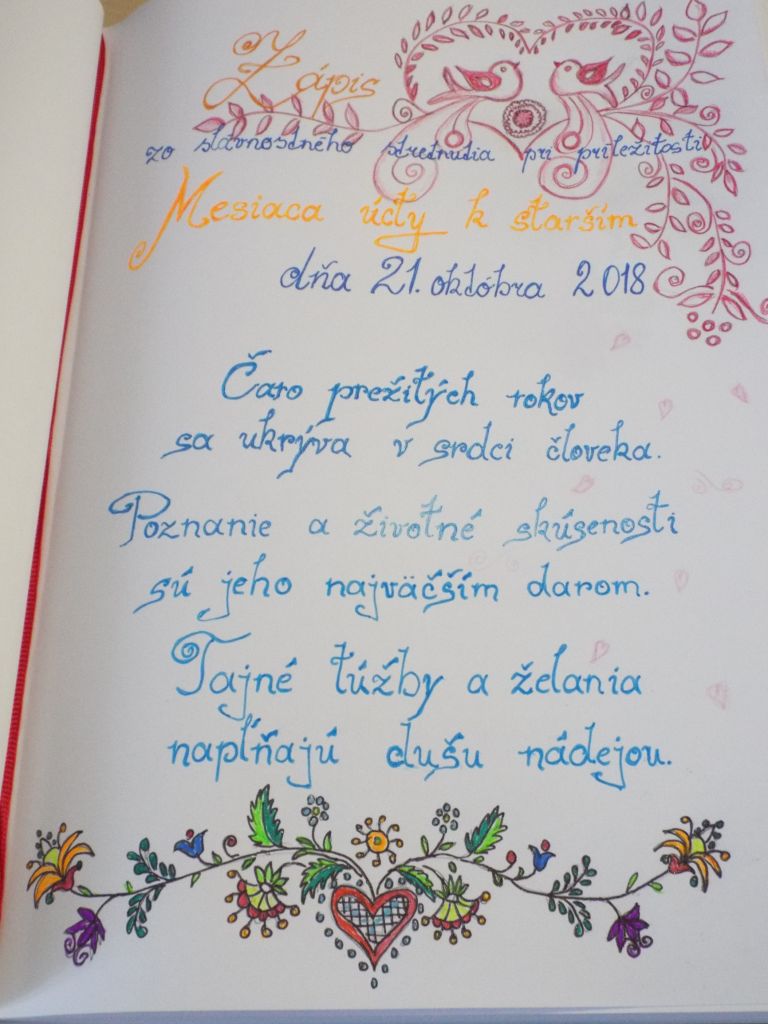 Zápis
zo slávnostného stretnutia pri príležitosti
Mesiaca úcty k starším
dňa 21. októbra 2018
Čaro prežitých rokov
sa ukrýva v srdci človeka.
Poznanie a životné skúsenosti
sú jeho najväčším darom.
Tajné túžby a želania
napĺňajú dušu nádejou.